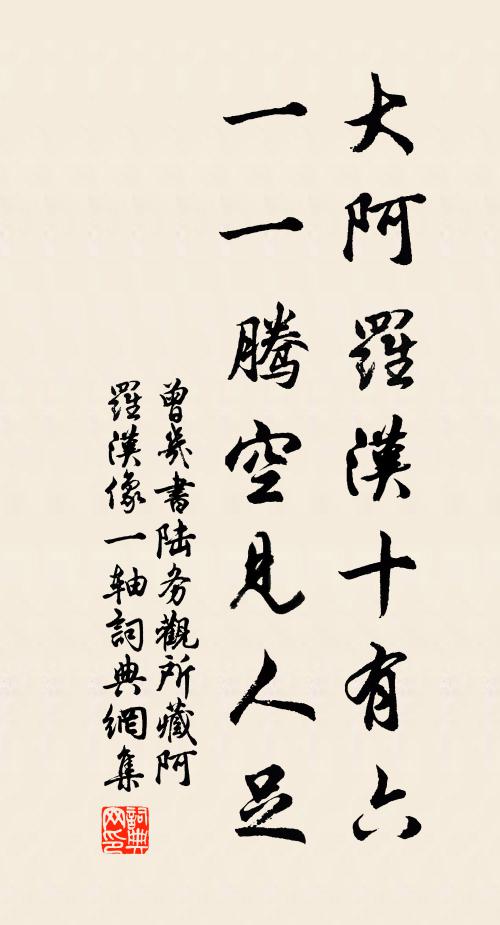 大阿羅漢十有六
一一騰空見人足
曾幾書陆务觀所藏阿
羅漢像一轴詞典網集
詞典
网印